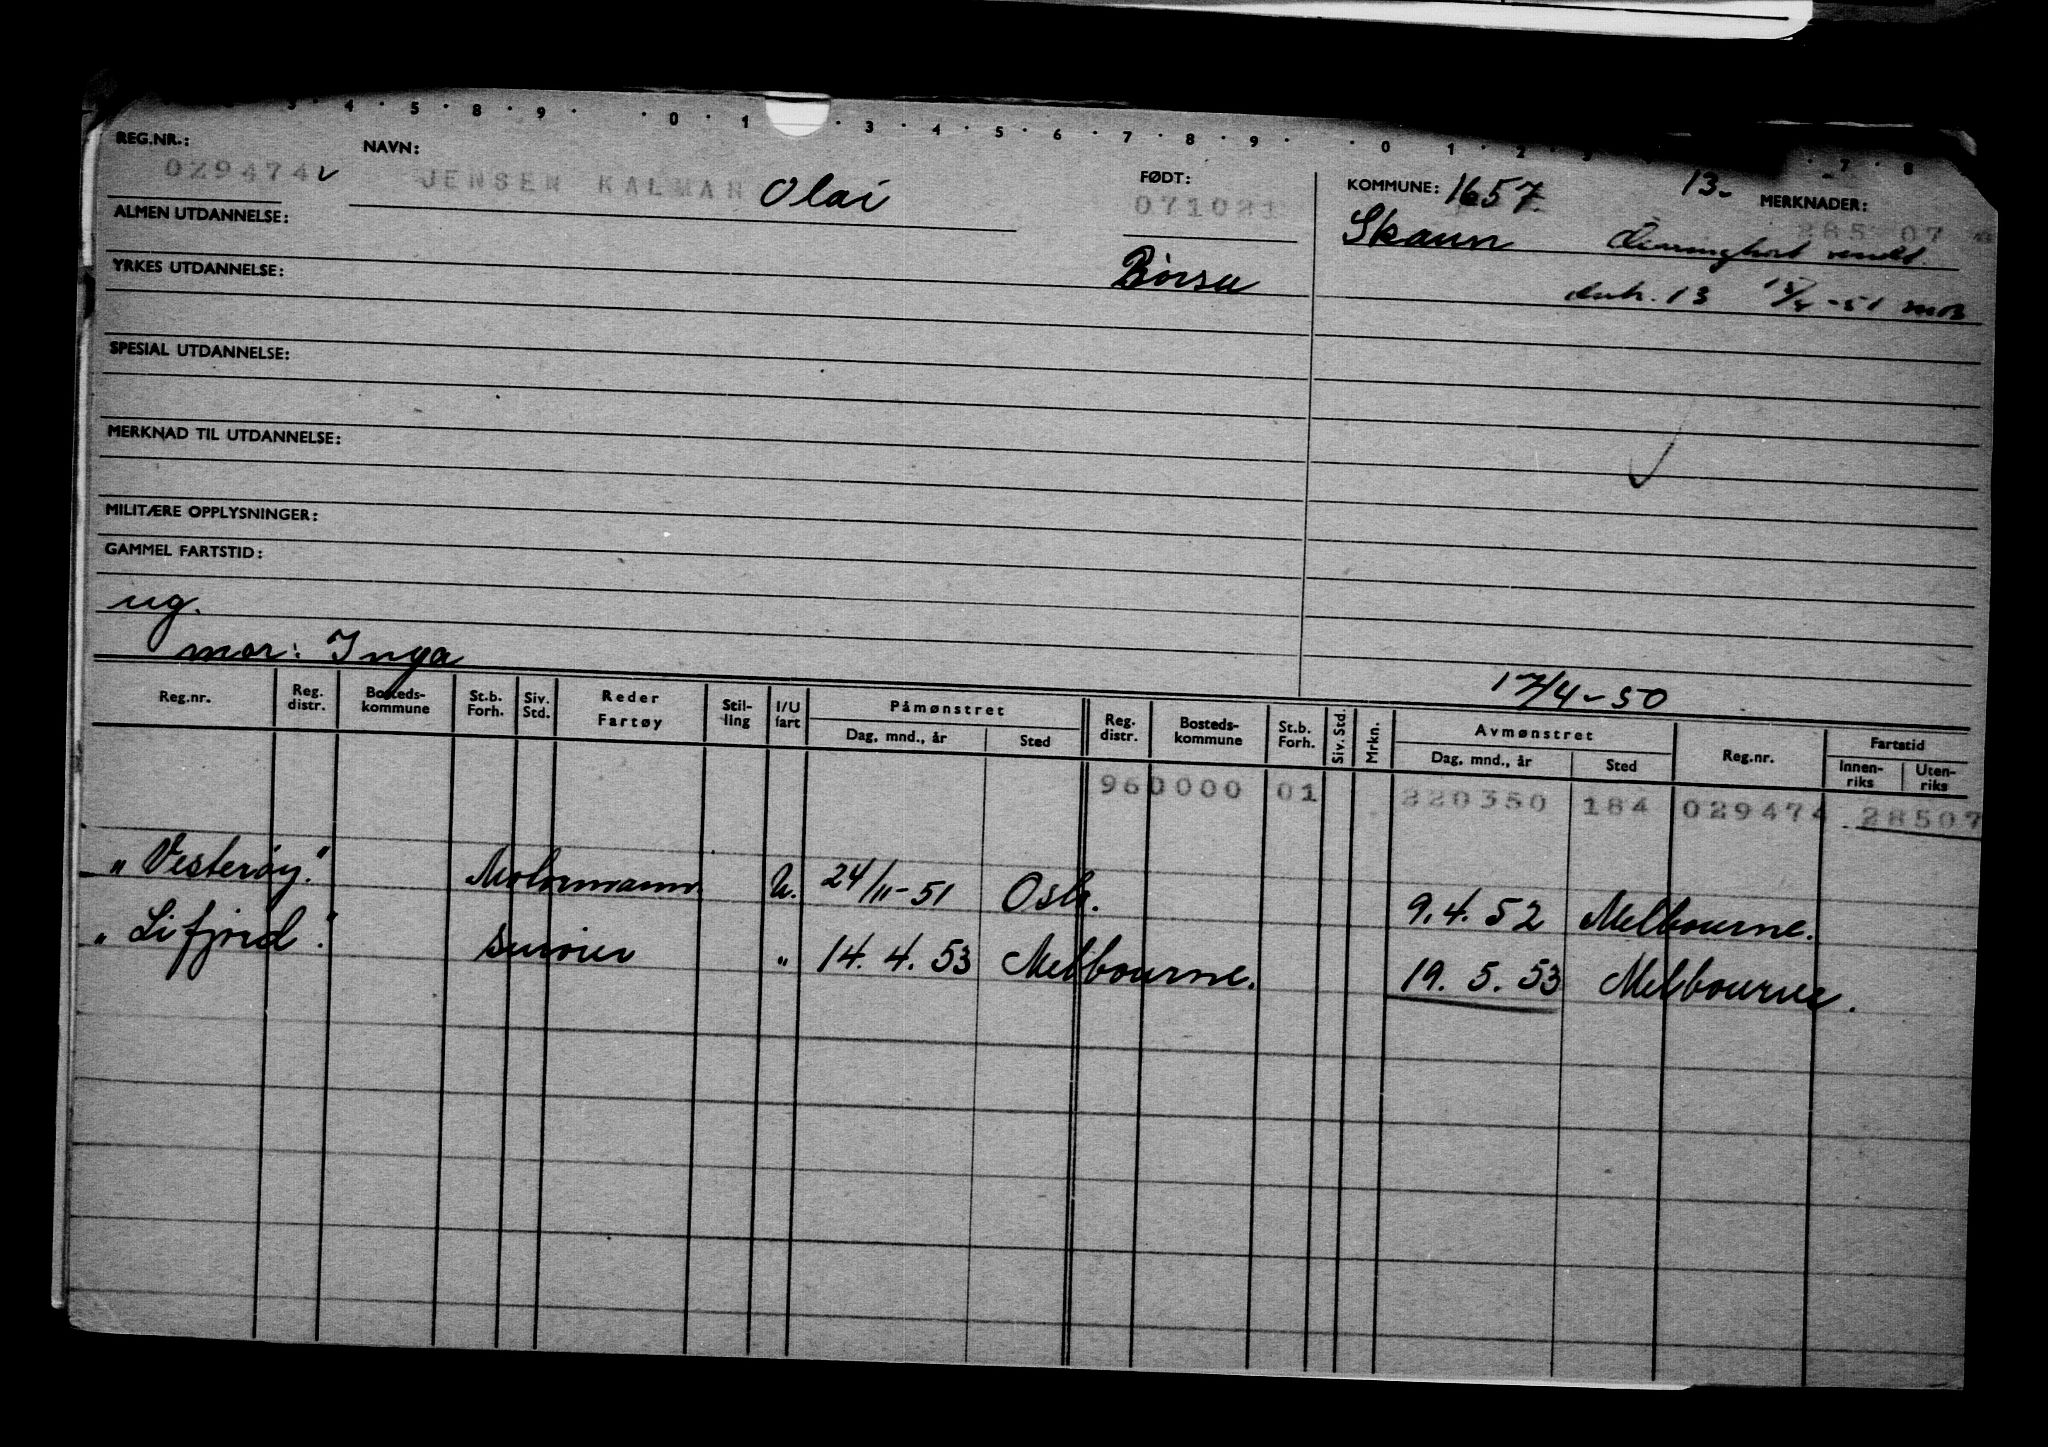 3 · 4 · 5 · 8 · 9 · · 0 · 1 · 3 · 4 · 5 · 6 · 7 · 8 · 9 · · 0 · 1 · 2 · 7 · 8
REG.NR.: NAVN: FØDT: KOMMUNE: 1657. 13. MERKNADER:
029474 JENSEN KALMAR Olai 071021 Skaun 285 07
ALMEN UTDANNELSE:
Børsa 13 -51
YRKES UTDANNELSE:
SPESIAL UTDANNELSE:
MERKNAD TIL UTDANNELSE:
MILITÆRE OPPLYSNINGER:
GAMMEL FARTSTID:
ug.
mor: Inga
17/4-50
Reg.nr. Reg. distr. Bosteds-kommune St.b. Forh. Siv. Std. Reder Fartøy Stil-ling I/U fart Påmønstret Dag, mnd., år Sted Reg. distr. Bosteds-kommune St.b. Forh. Siv. Std. Mrkn. Avmønstret Dag, mnd., år Sted Reg.nr. Fartstid Innen-riks Uten-riks
960000 01 220350 184 029474 28507
"Vesterøy." Motormann U. 24/11-51 Oslo. 9.4.52 Melbourne.
"Lifjord." " 14.4.53 Melbourne. 19.5.53 Melbourne.